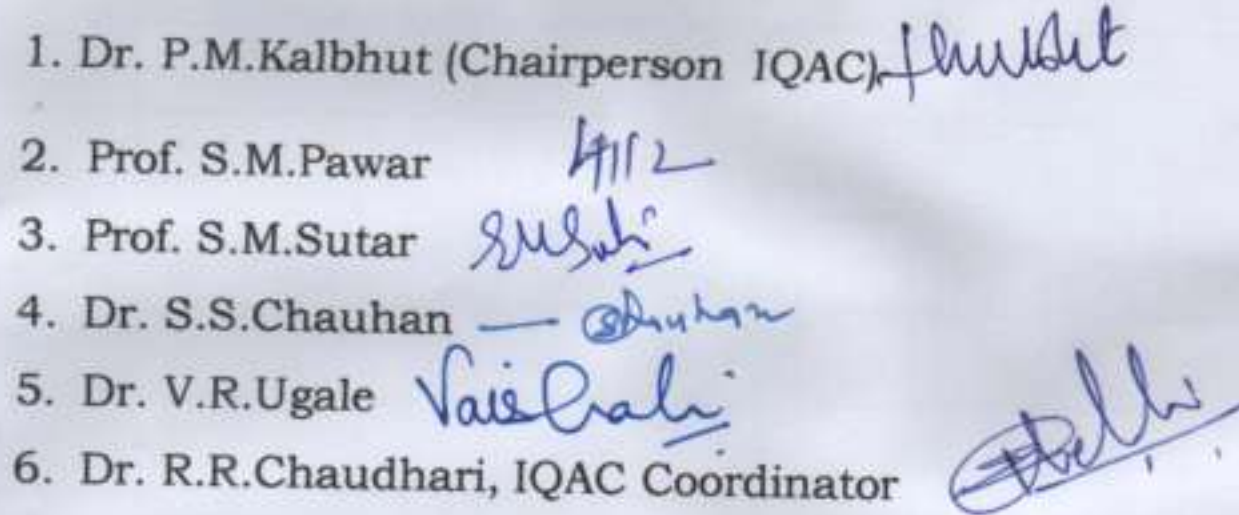 1. Dr. P.M.Kalbhut (Chairperson IQAC)
2. Prof. S.M.Pawar
3. Prof. S.M.Sutar
4. Dr. S.S.Chauhan — Chauhan
5. Dr. V.R.Ugale Vaishali
6. Dr. R.R.Chaudhari, IQAC Coordinator